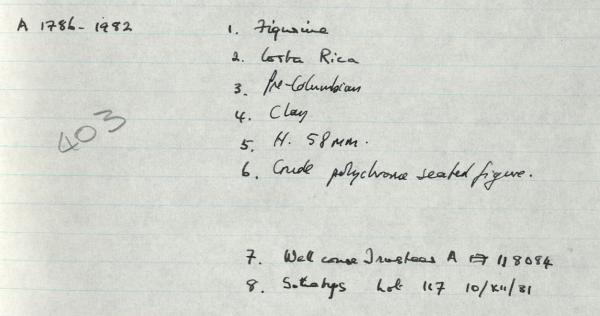 A 1786-1982
1. Figurine
2. Costa Rica
3. Pre-Columbian
4. Clay
403
5. H. 58mm.
6. Crude polychrome seated figure.
7. Wellcome Trustees A 118084
8. Sothebys Lot 117 10/XII/81